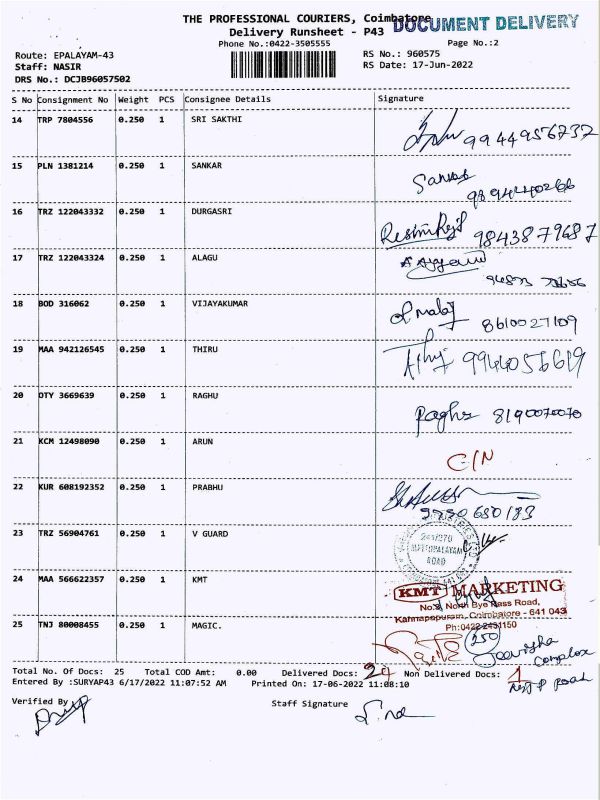 THE PROFESSIONAL COURIERS, Coimbatore
DOCUMENT DELIVERY
Delivery Runsheet - P43
Phone No.:0422-3505555
Page No.:2
Route: EPALAYAM-43
RS No.: 960575
Staff: NASIR
RS Date: 17-Jun-2022
DRS No.: DCJB96057502
S No Consignment No Weight PCS Consignee Details Signature
14 TRP 7804556 0.250 1 SRI SAKTHI 9944956737
15 PLN 1381214 0.250 1 SANKAR
16 TRZ 122043332 0.250 1 DURGASRI 9843879687
17 TRZ 122043324 0.250 1 ALAGU
18 BOD 316062 0.250 1 VIJAYAKUMAR 8610027109
19 MAA 942126545 0.250 1 THIRU 9944056619
20 OTY 3669639 0.250 1 RAGHU Raghu 8190070070
21 KCM 12498090 0.250 1 ARUN C/N
22 KUR 608192352 0.250 1 PRABHU
23 TRZ 56904761 0.250 1 V GUARD
ROAD
24 MAA 566622357 0.250 1 KMT
KMT MARKETING
No.3, North Bye Pass Road,
Kannappapuram, Coimbatore - 641 043
25 TNJ 80008455 0.250 1 MAGIC.
Ph:0422-2431150
250
Complex
Total No. Of Docs: 25 Total COD Amt: 0.00 Delivered Docs: 24 Non Delivered Docs: 1
Road
Entered By :SURYAP43 6/17/2022 11:07:52 AM Printed On: 17-06-2022 11:08:10
Verified By
Staff Signature